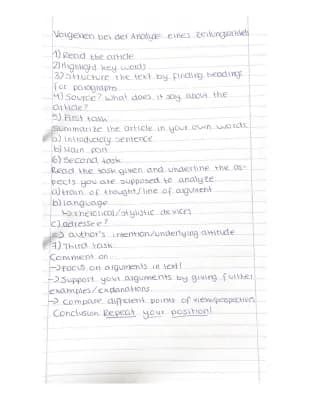 Vorgehen bei der Analyse eines Zeitungsartikels
1) Read the article
2) Highlight key words
3) Structure the text by finding headings
for paragraphs
4) Source? What does it say about the
article?
5) First task
Summarize the article in your own words
a) Introductory sentence
b) Main part
6) Second task
Read the task given and underline the as-
pects you are supposed to analyze
a) train of thought/line of argument
b) language
↳ rhetorical/stylistic devices
c) adressee?
=> author's intention/underlying attitude
7) Third task
Comment on...
-> Focus on arguments in text!
-> Support your arguments by giving further
examples/explanations.
-> Compare different points of view/perspective
Conclusion: Repeat your position!